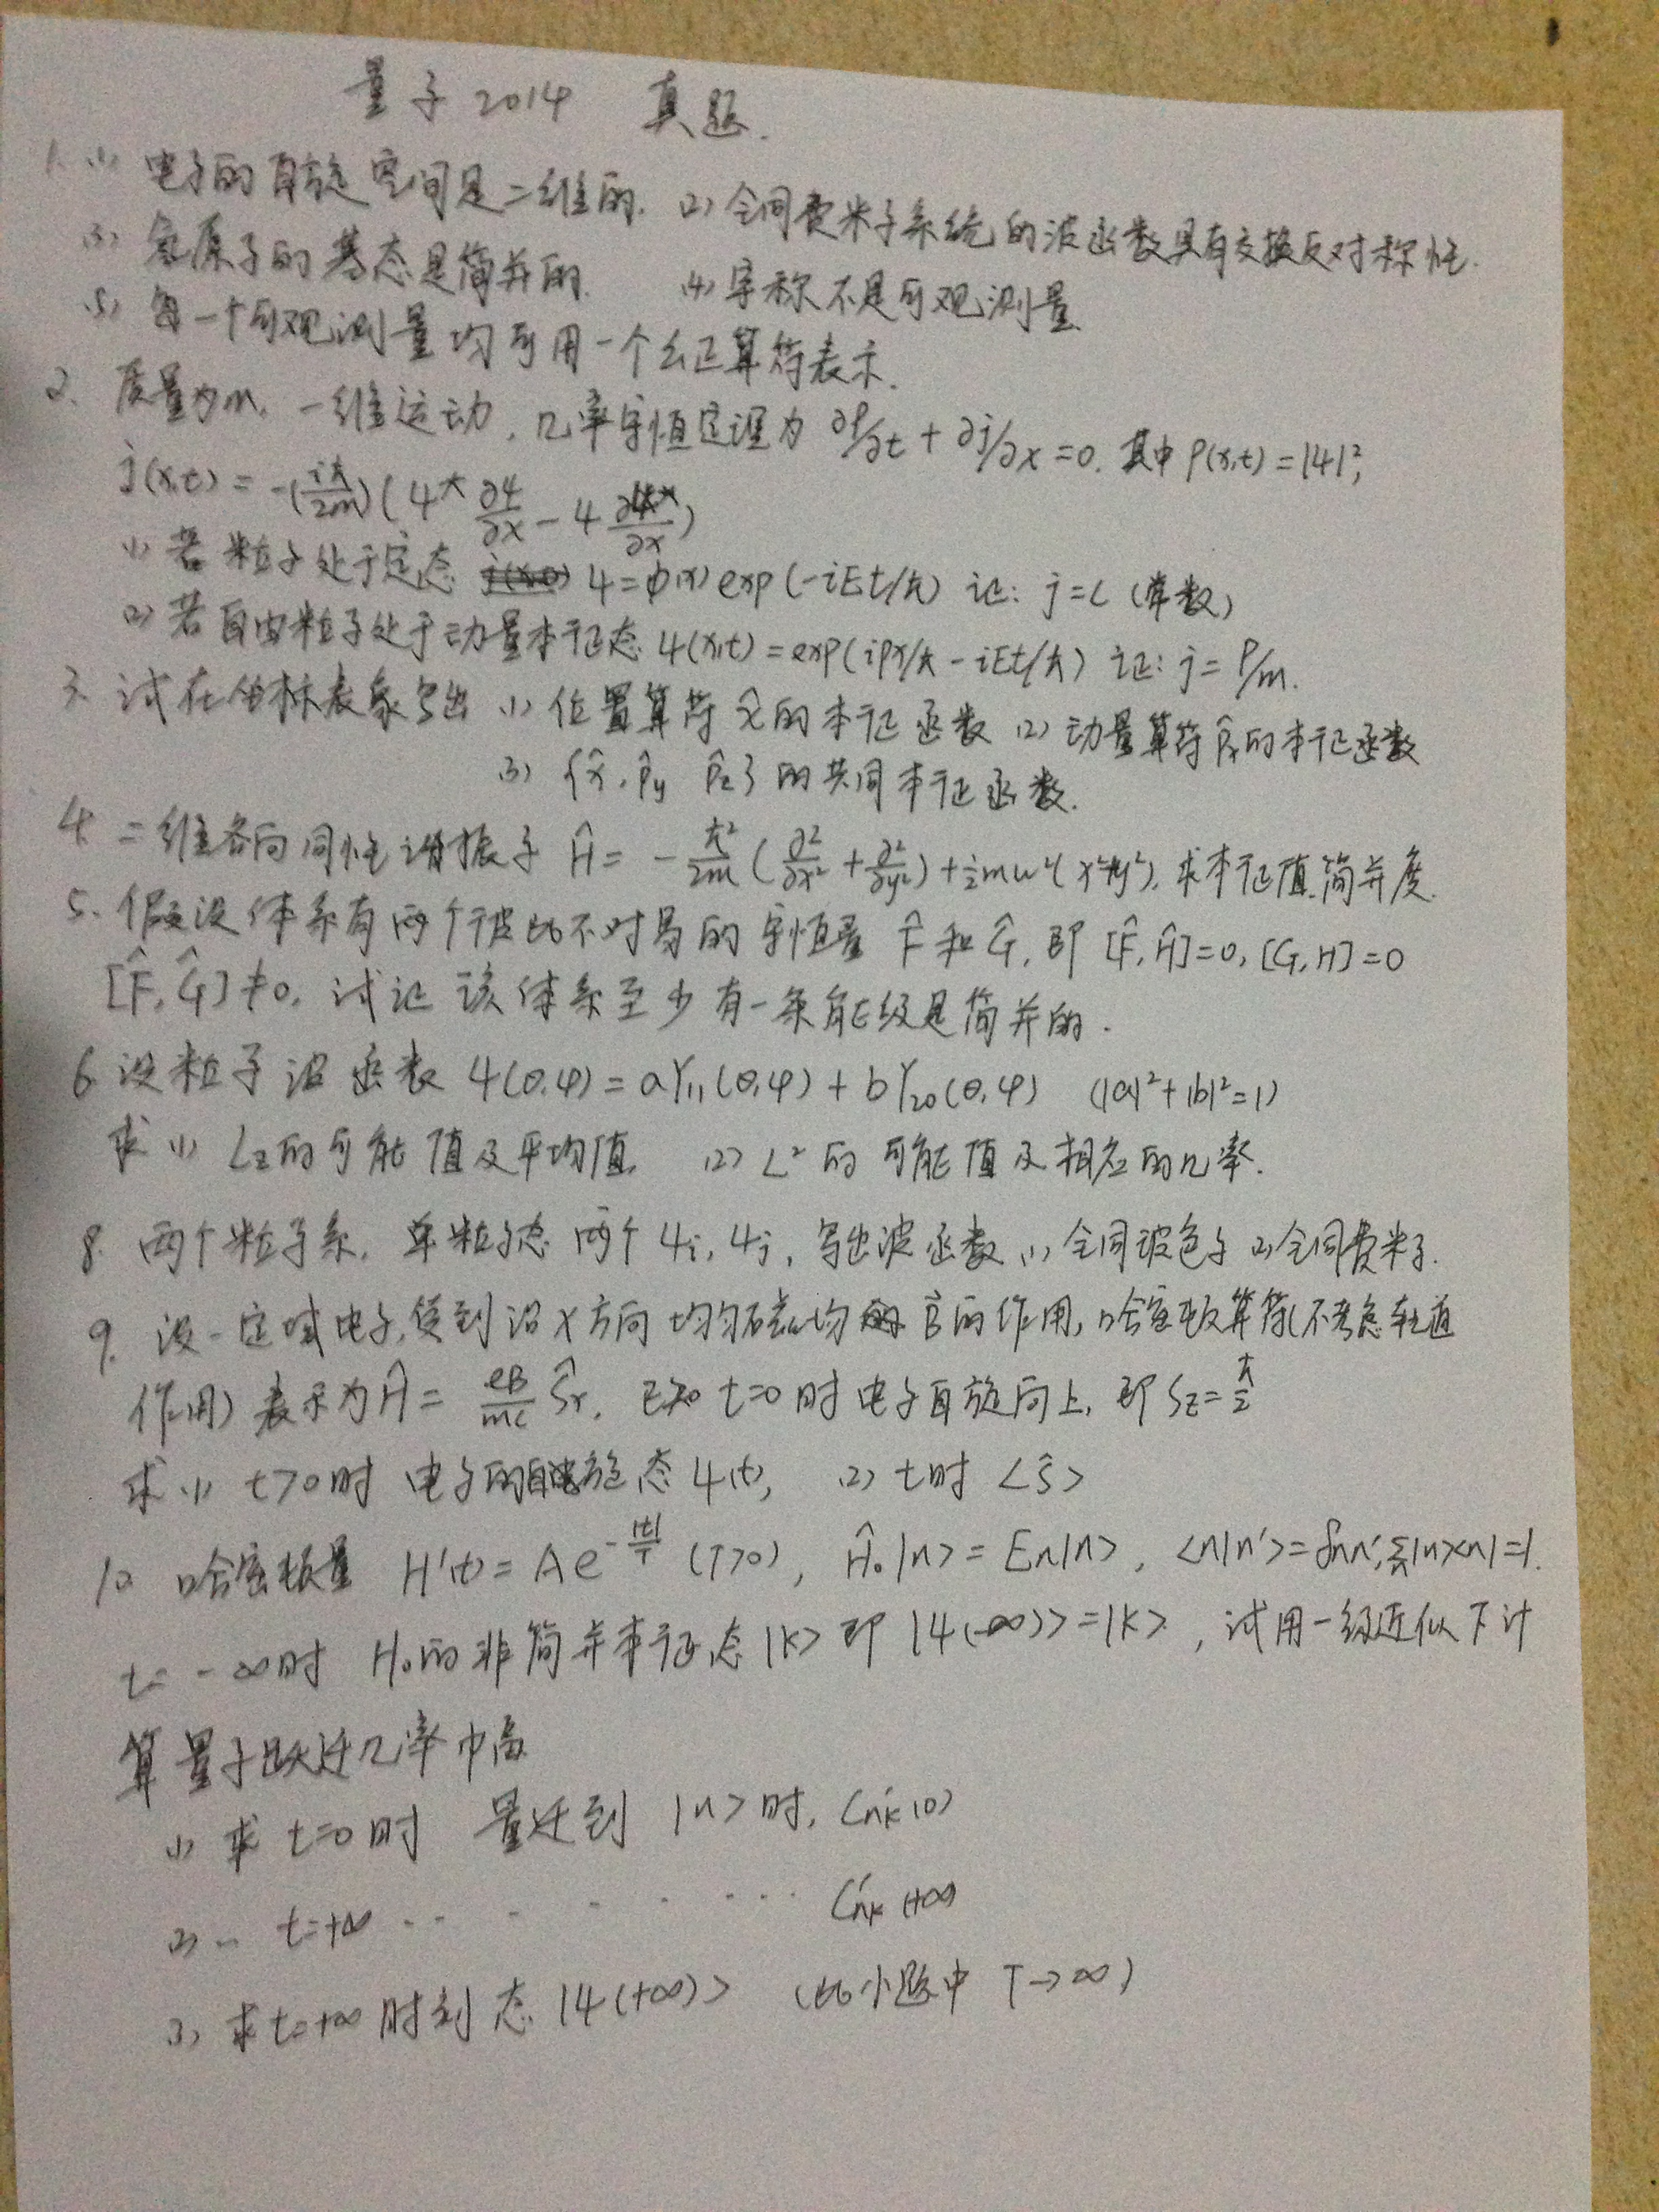 量子 2014 真题.
1. (1) 电子的自旋空间是二维的. (2) 全同费米子系统的波函数具有交换反对称性.
(3) 氢原子的基态是简并的. (4) 宇称不是可观测量
(5) 每一个可观测量均可用一个幺正算符表示.
2. 质量为m, 一维运动, 几率守恒定理为 ∂ρ/∂t + ∂j/∂x = 0. 其中 ρ(x,t) = |ψ|²,
j(x,t) = -(iħ/2m)(ψ* ∂ψ/∂x - ψ ∂ψ*/∂x)
(1) 若粒子处于定态 ψ = φ(x) exp(-iEt/ħ) 证: j = C (常数)
(2) 若自由粒子处于动量本征态 ψ(x,t) = exp(ipx/ħ - iEt/ħ) 证: j = P/m.
3. 试在坐标表象写出 (1) 位置算符 x̂ 的本征函数 (2) 动量算符 p̂x 的本征函数
(3) {x̂, p̂y p̂z} 的共同本征函数.
4. 二维各向同性谐振子 Ĥ = -ħ²/2m (∂²/∂x² + ∂²/∂y²) + ½mω²(x²+y²), 求本征值.简并度.
5. 假设体系有两个彼此不对易的守恒量 F̂ 和 Ĝ, 即 [F̂, Ĥ] = 0, [G, H] = 0
[F̂, Ĝ] ≠ 0, 试证该体系至少有一条能级是简并的.
6. 设粒子波函数 ψ(θ,φ) = aY₁₁(θ,φ) + bY₂₀(θ,φ) (|a|² + |b|² = 1)
求 (1) Lz的可能值及平均值. (2) L² 的可能值及相应的几率.
8. 两个粒子系, 单粒子态两个 ψi, ψj, 写出波函数 (1) 全同玻色子 (2) 全同费米子.
9. 设一定域电子, 受到沿 x 方向均匀磁场 B 的作用, 哈密顿算符(不考虑轨道
作用) 表示为 Ĥ = eB/mc Ŝx, 已知 t=0 时电子自旋向上, 即 Sz = ħ/2
求 (1) t>0 时 电子的自旋态 ψ(t), (2) t时 <ŝ>
10. 哈密顿量 H'(t) = A e^(-|t|/T) (T>0), Ĥ₀|n> = En|n>, <n|n'> = δnn', Σ|n><n| = 1.
t = -∞时 H₀的非简并本征态 |k> 即 |ψ(-∞)> = |k>, 试用一级近似下计
算量子跃迁几率巾高
(1) 求 t=0 时 量迁到 |n> 时, Cn'k(0)
(2) .. t=+∞ .. - - - ... C'nk(+∞)
(3) 求 t=+∞ 时刻态 |ψ(+∞)> (此小题中 T→∞)